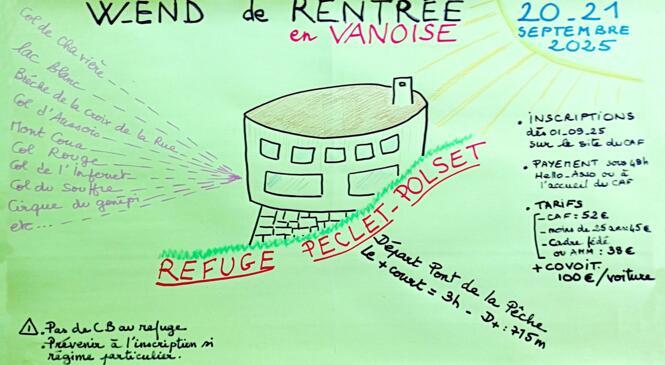 W-END de RENTRÉE
en VANOISE
20-21
SEPTEMBRE
2025
Col de Chavière
lac Blanc
Brêche de la Croix de la Rue
Col d'Aussois
Mont Coua
Col Rouge
Col de l'Infernet
Col du Souffre
Cirque du genépi
etc...
REFUGE PECLET-POLSET
Départ Pont de la Pêche
le + court = 3h - D+: 715m
• INSCRIPTIONS
dès 01-09-25
sur le site du CAF
• PAYEMENT sous 48h
Hello-Asso ou à
l'accueil du CAF
• TARIFS
- CAF: 52€
- moins de 25 ans: 45€
- Cadre fédé
ou AMM: 38€
+ COVOIT.
100€/voiture
⚠ • Pas de CB au refuge
• Prévenir à l'inscription si
régime particulier.